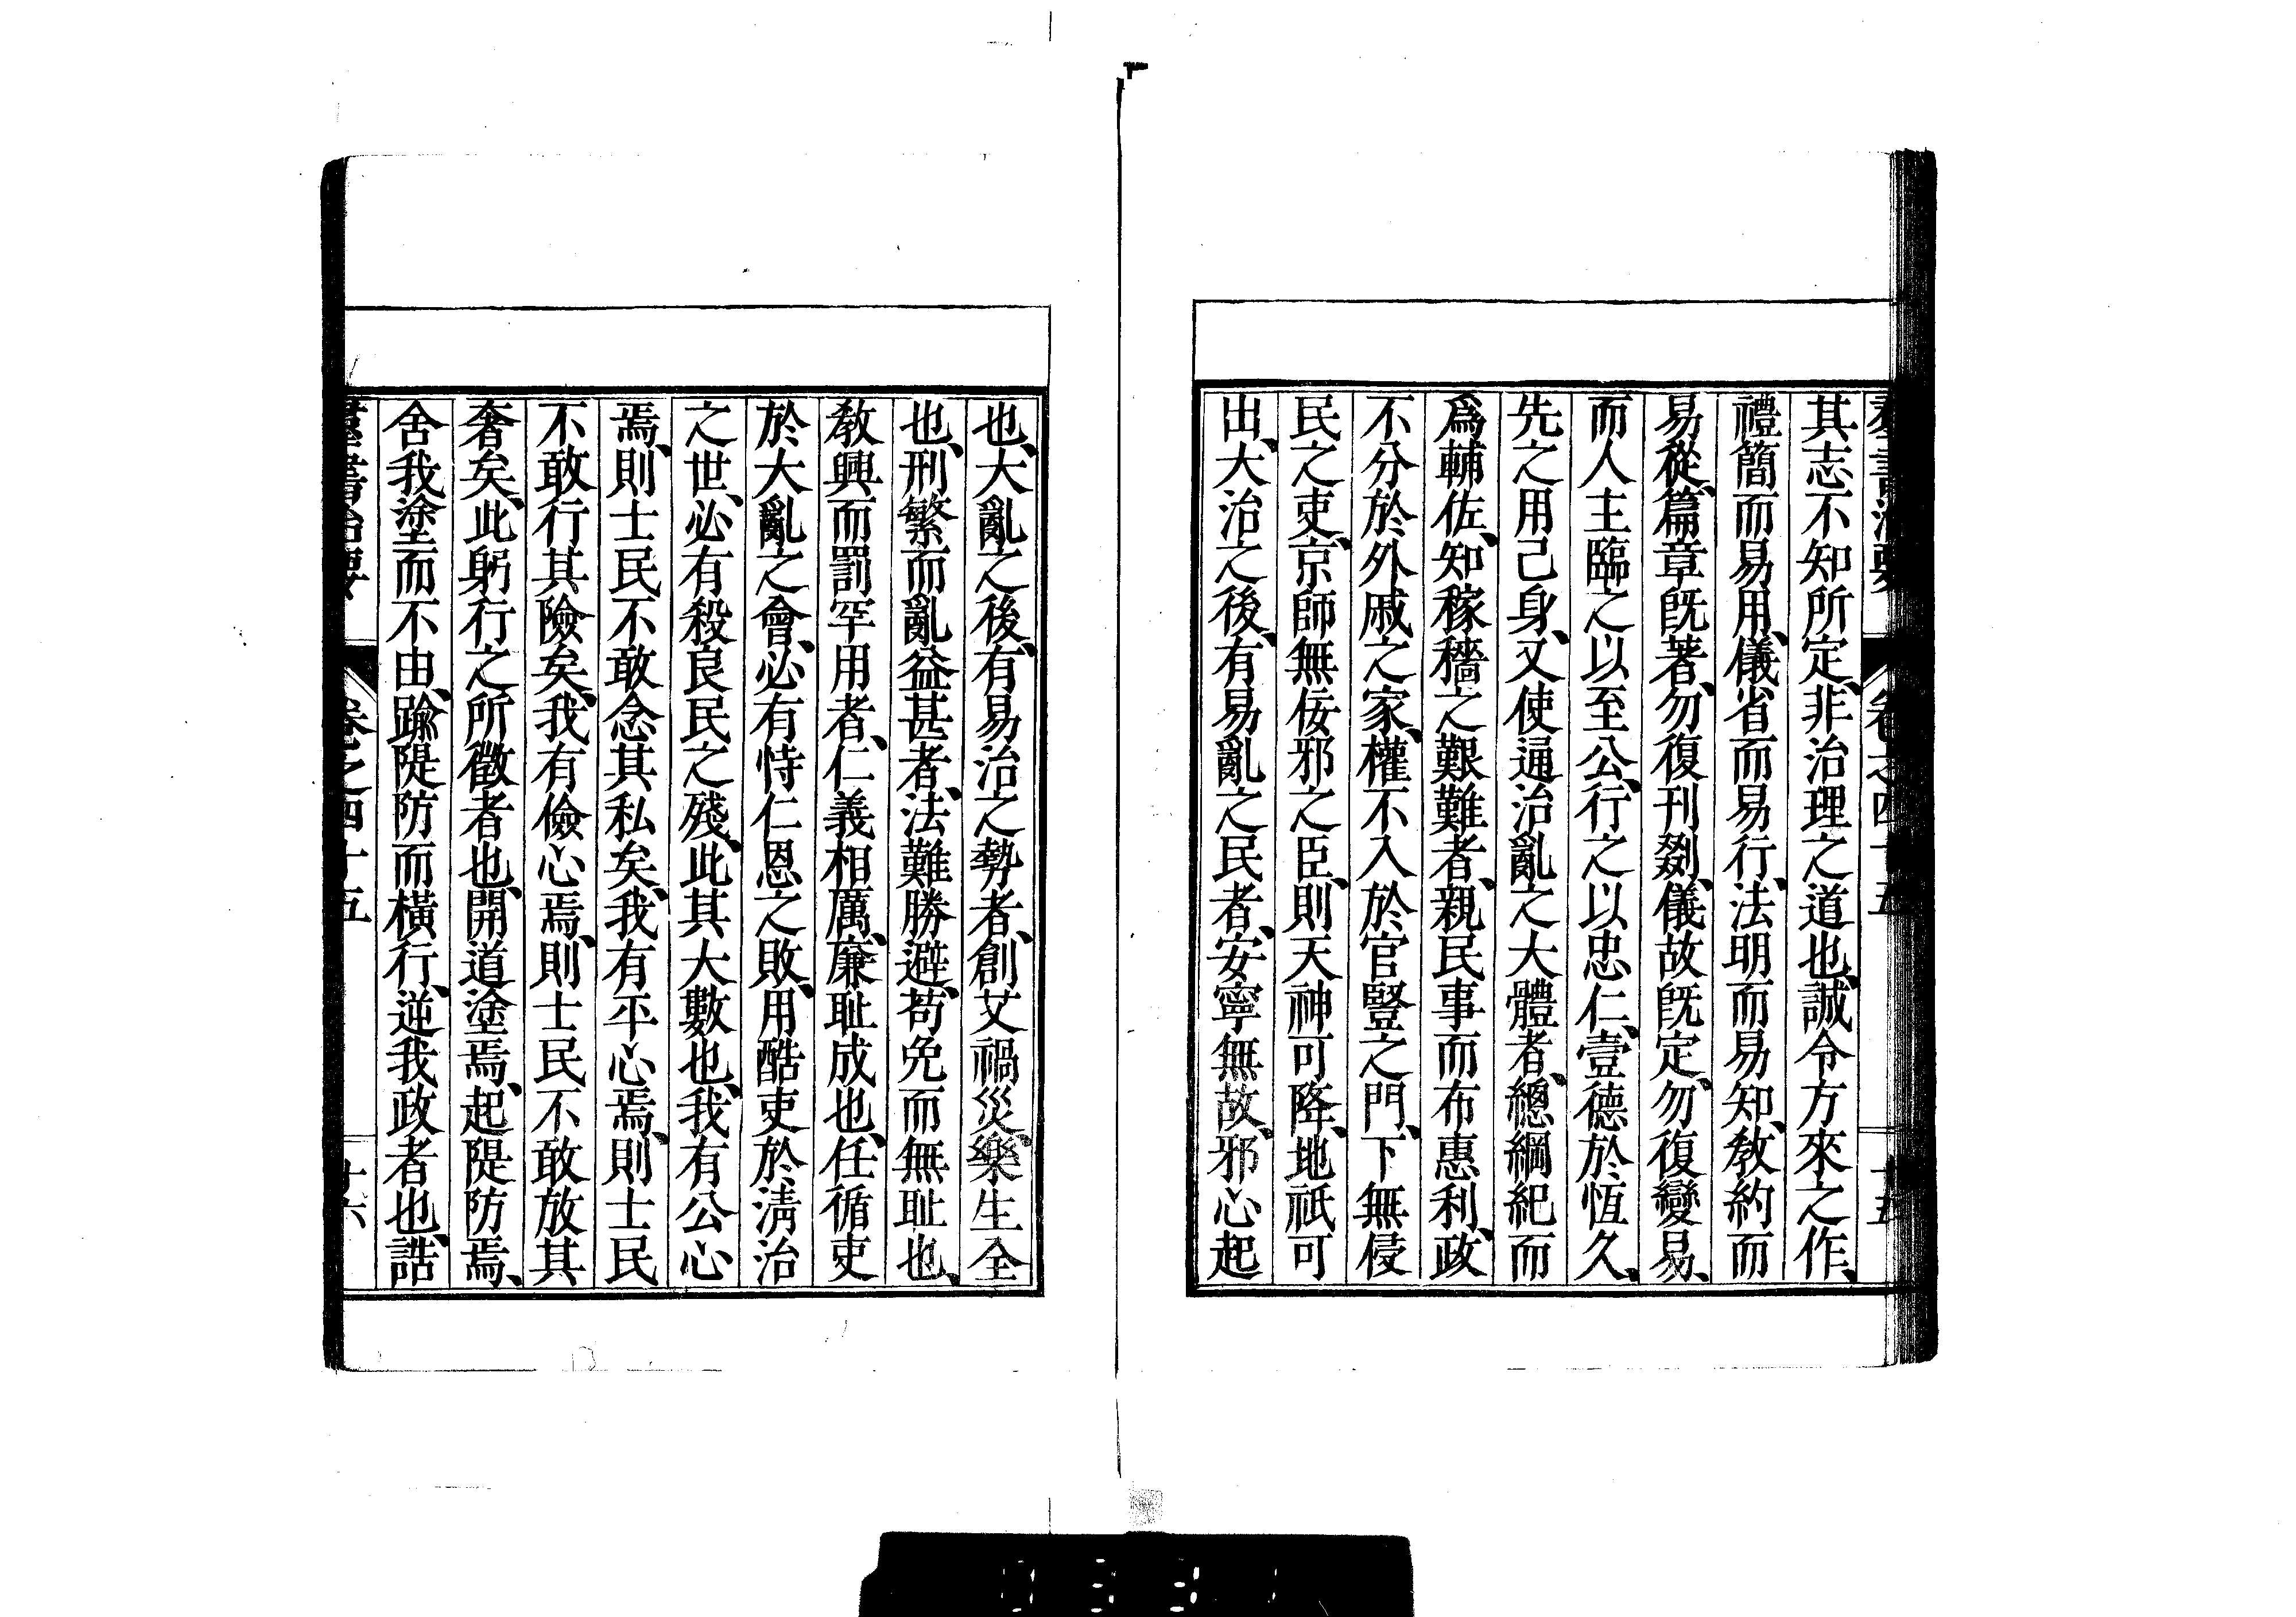 羣書治要 卷之四十五 十五
其志不知所定、非治理之道也、誠令方來之作、
禮簡而易用、儀省而易行、法明而易知、教約而
易從、篇章既著、勿復刊剟、儀故既定、勿復變易、
而人主臨之以至公、行之以忠仁、壹德於恆久、
先之用己身、又使通治亂之大體者、總綱紀而
爲輔佐、知稼穡之艱難者、親民事而布惠利、政
不分於外戚之家、權不入於官豎之門、下無侵
民之吏、京師無佞邪之臣、則天神可降、地祇可
出、大治之後、有易亂之民者、安寧無故、邪心起
也、大亂之後、有易治之勢者、創艾禍災、樂生全
也、刑繁而亂益甚者、法難勝避、苟免而無耻也、
教興而罰罕用者、仁義相厲、廉耻成也、任循吏
於大亂之會、必有恃仁恩之敗、用酷吏於清治
之世、必有殺良民之殘、此其大數也、我有公心
焉、則士民不敢念其私矣、我有平心焉、則士民
不敢行其險矣、我有儉心焉、則士民不敢放其
奢矣、此躬行之所徵者也、開道塗焉、起隄防焉、
舍我塗而不由、踰隄防而橫行、逆我政者也、誥
羣書治要 卷之四十五 十六